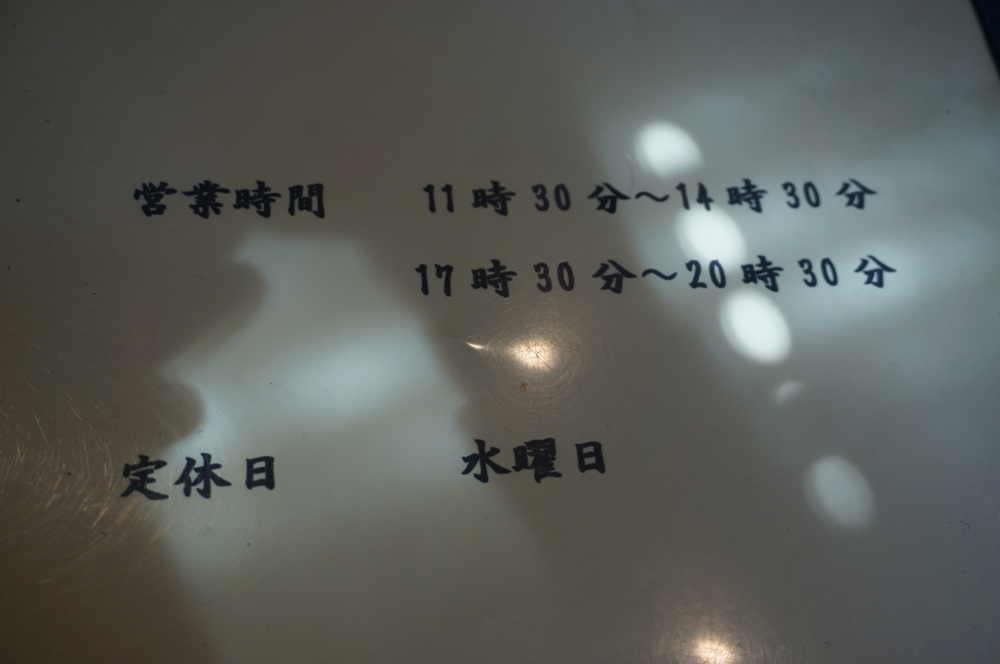 営業時間 11時30分～14時30分
17時30分～20時30分
定休日 水曜日